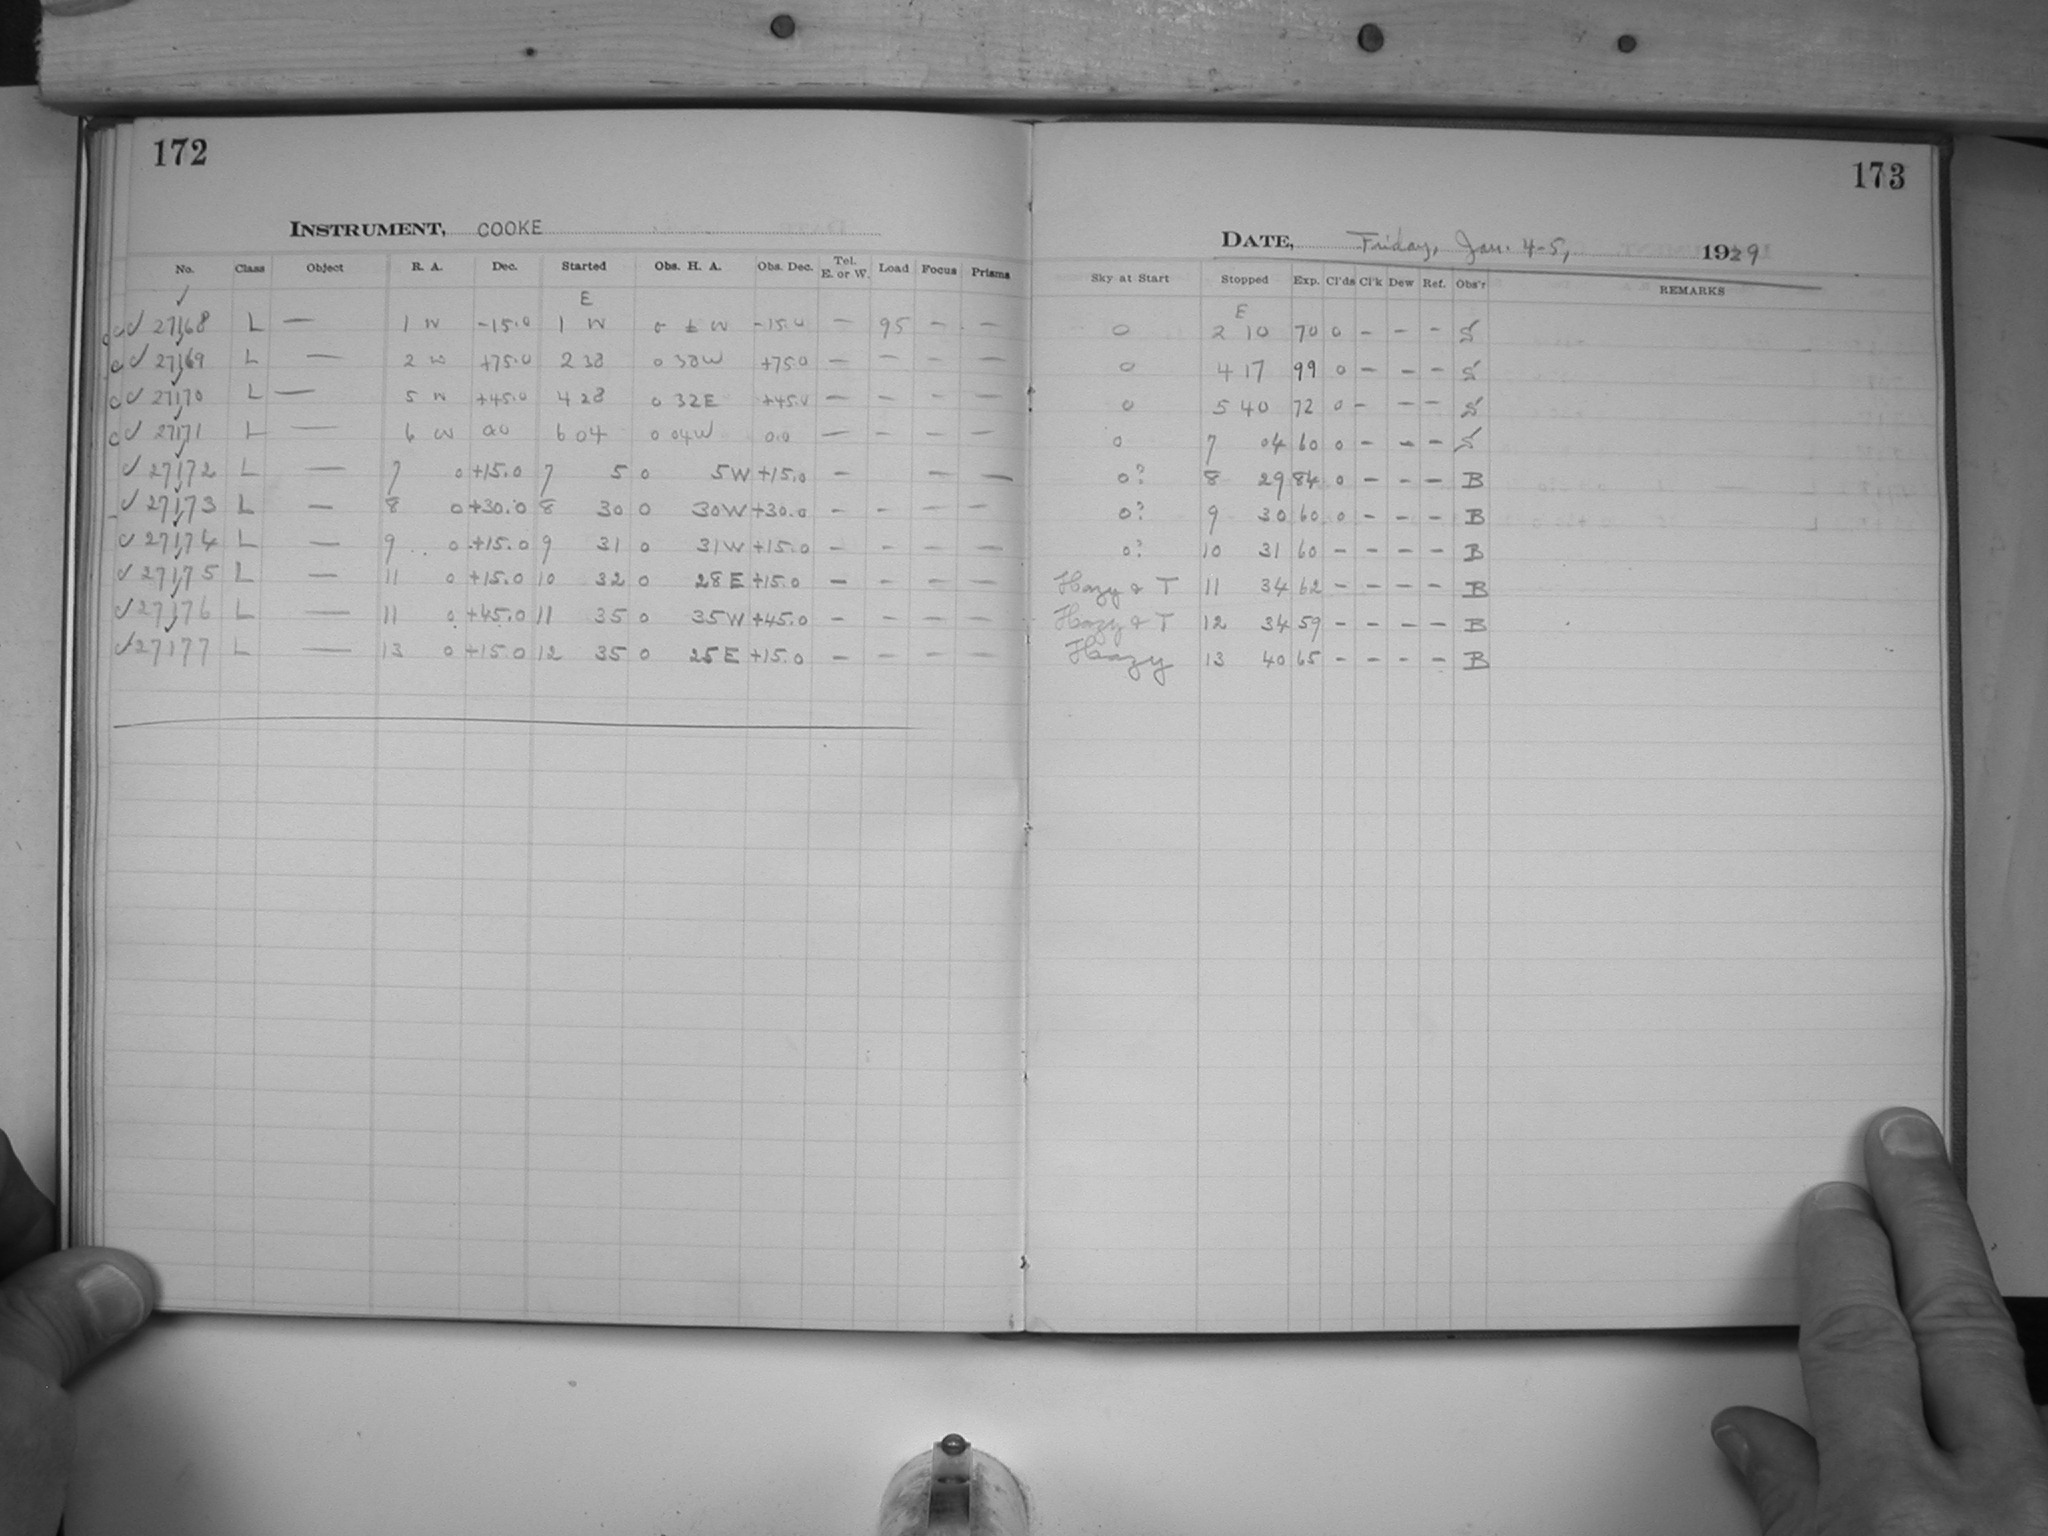 172
INSTRUMENT, COOKE
No. Class Object R. A. Dec. Started Obs. H. A. Obs. Dec. Tel. E. or W. Load Focus Prisms
✓ E
✓ 27168 L — 1 W -15.0 1 W W -15.0 — 95 - -
✓ 27169 L — 2 W +75.0 2 38 0 38W +75.0 — - - -
✓ 27170 L — 5 W +45.0 4 28 0 32E +45.0 — - - -
✓ 27171 L — 6 W 0.0 6 04 0 04W 0.0 — - - -
✓ 27172 L — 7 0 +15.0 7 5 0 5W +15.0 - - -
✓ 27173 L — 8 0 +30.0 8 30 0 30W +30.0 - - - -
✓ 27174 L — 9 0 +15.0 9 31 0 31W +15.0 - - - -
✓ 27175 L — 11 0 +15.0 10 32 0 28E +15.0 - - - -
✓ 27176 L — 11 0 +45.0 11 35 0 35W +45.0 - - - -
✓ 27177 L — 13 0 +15.0 12 35 0 25E +15.0 - - - -
173
DATE, Friday, Jan. 4-5, 1929
Sky at Start Stopped Exp. Cl'ds Cl'k Dew Ref. Obs'r REMARKS
E
0 2 10 70 0 - - - S
0 4 17 99 0 - - - S
0 5 40 72 0 - - - S
0 7 04 60 0 - - - S
0? 8 29 84 0 - - - B
0? 9 30 60 0 - - - B
0? 10 31 60 - - - - B
Hazy & T 11 34 62 - - - - B
Hazy & T 12 34 59 - - - - B
Hazy 13 40 65 - - - - B